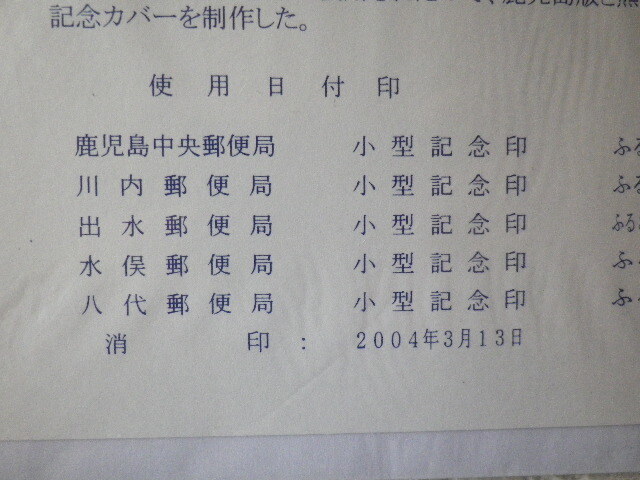 記念カバーを制作した。
使用日付印
鹿児島中央郵便局 小型記念印 ふる
川内郵便局 小型記念印 ふる
出水郵便局 小型記念印 ふる
水俣郵便局 小型記念印 ふ
八代郵便局 小型記念印 ふ
消印： 2004年3月13日